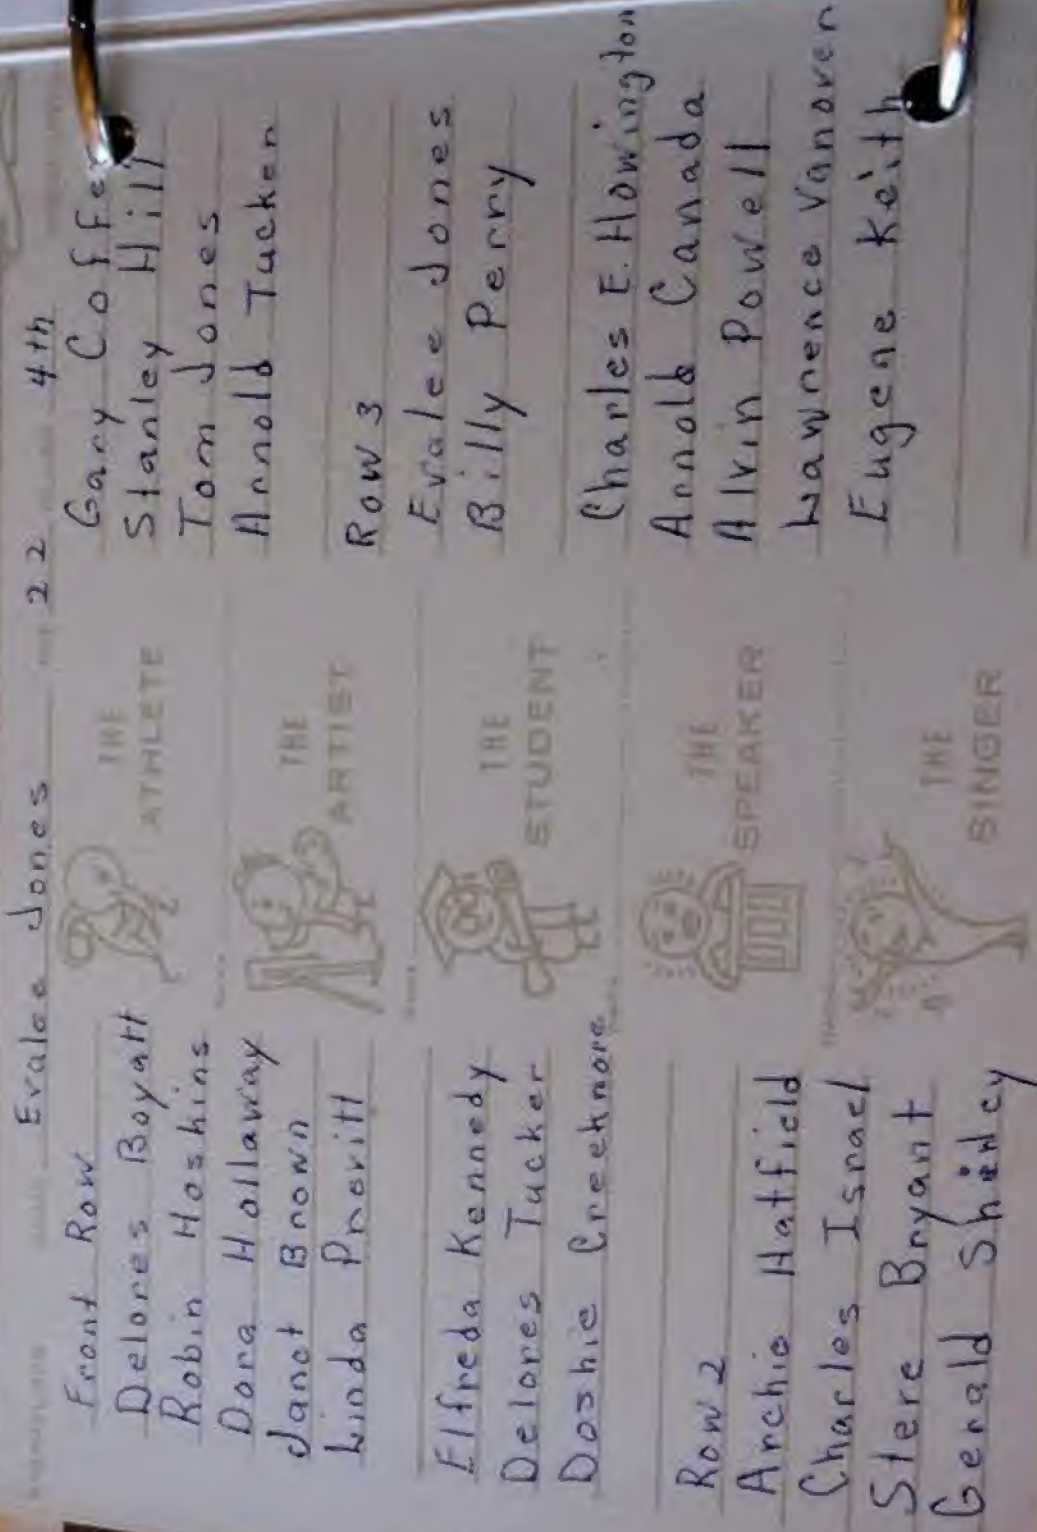 Evalee Jones 22 4th
Front Row
Delores Boyatt
Robin Hoskins
Dora Hollaway
Janet Brown
Linda Previtt
Elfreda Kennedy
Delores Tucker
Doshie Creekmore
Row 2
Archie Hatfield
Charles Israel
Steve Bryant
Gerald Shirley
THE
ATHLETE
THE
ARTIST
THE
STUDENT
THE
SPEAKER
THE
SINGER
Gary Coffe
Stanley Hill
Tom Jones
Arnold Tucker
Row 3
Evalee Jones
Billy Perry
Charles E. Howington
Arnold Canada
Alvin Powell
Lawrence Vanover
Eugene Keith